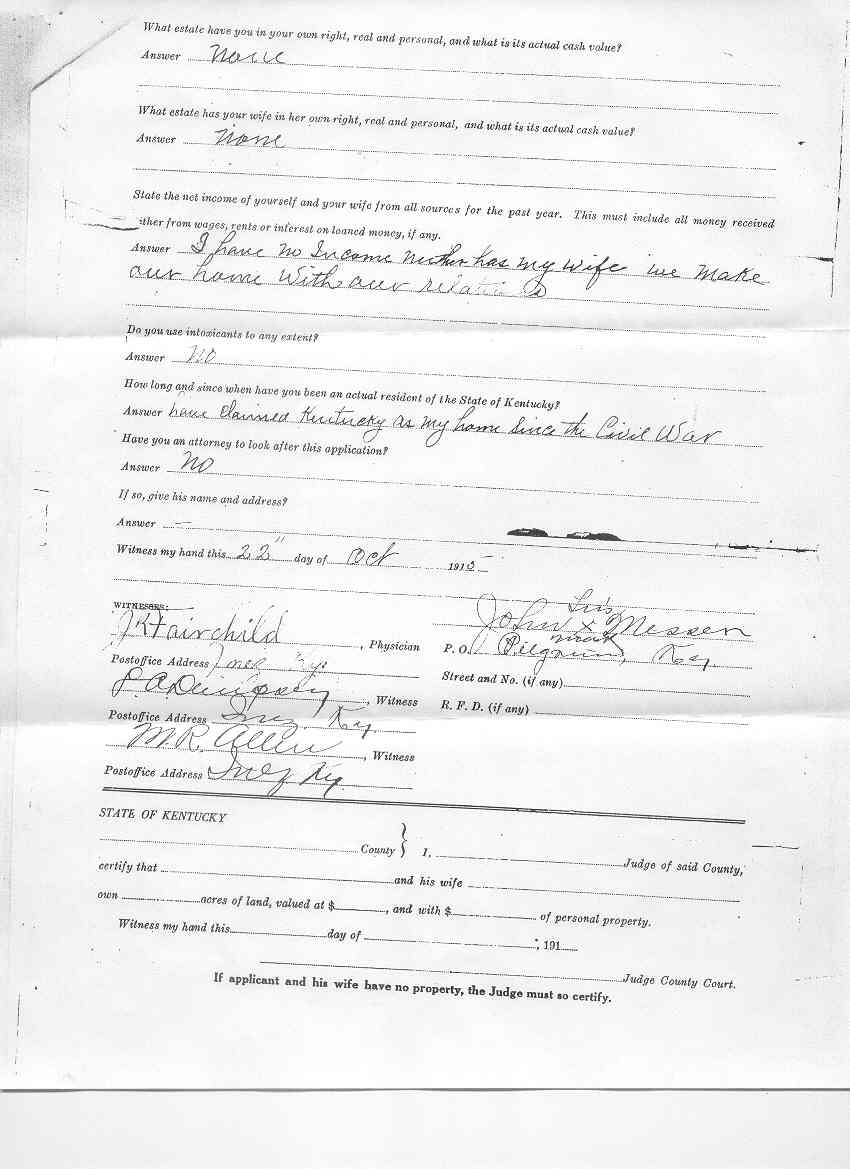 What estate have you in your own right, real and personal, and what is its actual cash value?
Answer None
What estate has your wife in her own right, real and personal, and what is its actual cash value?
Answer None
State the net income of yourself and your wife from all sources for the past year. This must include all money received
ither from wages, rents or interest on loaned money, if any.
Answer I have no Income neither has my wife we make
our home with our relati s
Do you use intoxicants to any extent?
Answer No
How long and since when have you been an actual resident of the State of Kentucky?
Answer have claimed Kentucky as my home since the Civil War
Have you an attorney to look after this application?
Answer No
If so, give his name and address?
Answer —
Witness my hand this 22" day of Oct 1915
WITNESSES:
his
John x Messer
mark
J K Fairchild, Physician
P. O. Pilgrim, Ky.
Postoffice Address Inez Ky.
Street and No. (if any)
L A Dempsey, Witness
R. F. D. (if any)
Postoffice Address Inez Ky.
M. R. Allen, Witness
Postoffice Address Inez Ky
STATE OF KENTUCKY
County } I, Judge of said County,
certify that and his wife
own acres of land, valued at $ , and with $ of personal property.
Witness my hand this day of , 191
Judge County Court.
If applicant and his wife have no property, the Judge must so certify.